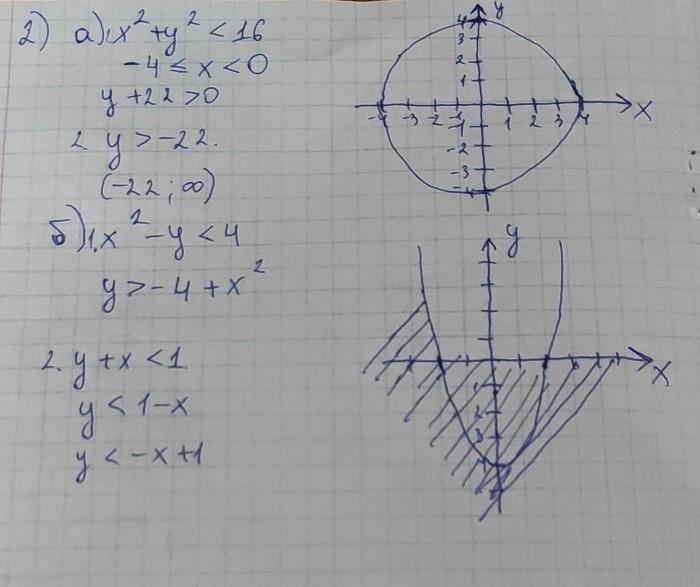 2) а) 1x² + y² < 16
-4 ≤ x < 0
y + 22 > 0
2 y > -22.
(-22; ∞)
б) 1. x² - y < 4
y > -4 + x²
2. y + x < 1
y < 1 - x
y < -x + 1
y
4
3
2
1
-4 -3 -2 -1 1 2 3 4 x
-1
-2
-3
-4
y
x
1
2
3
4